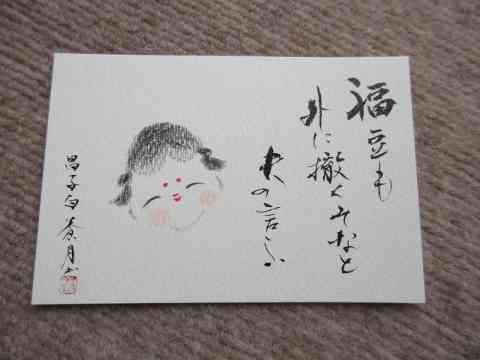 福豆も
外に撒くみなと
夫の言ふ
昌子句